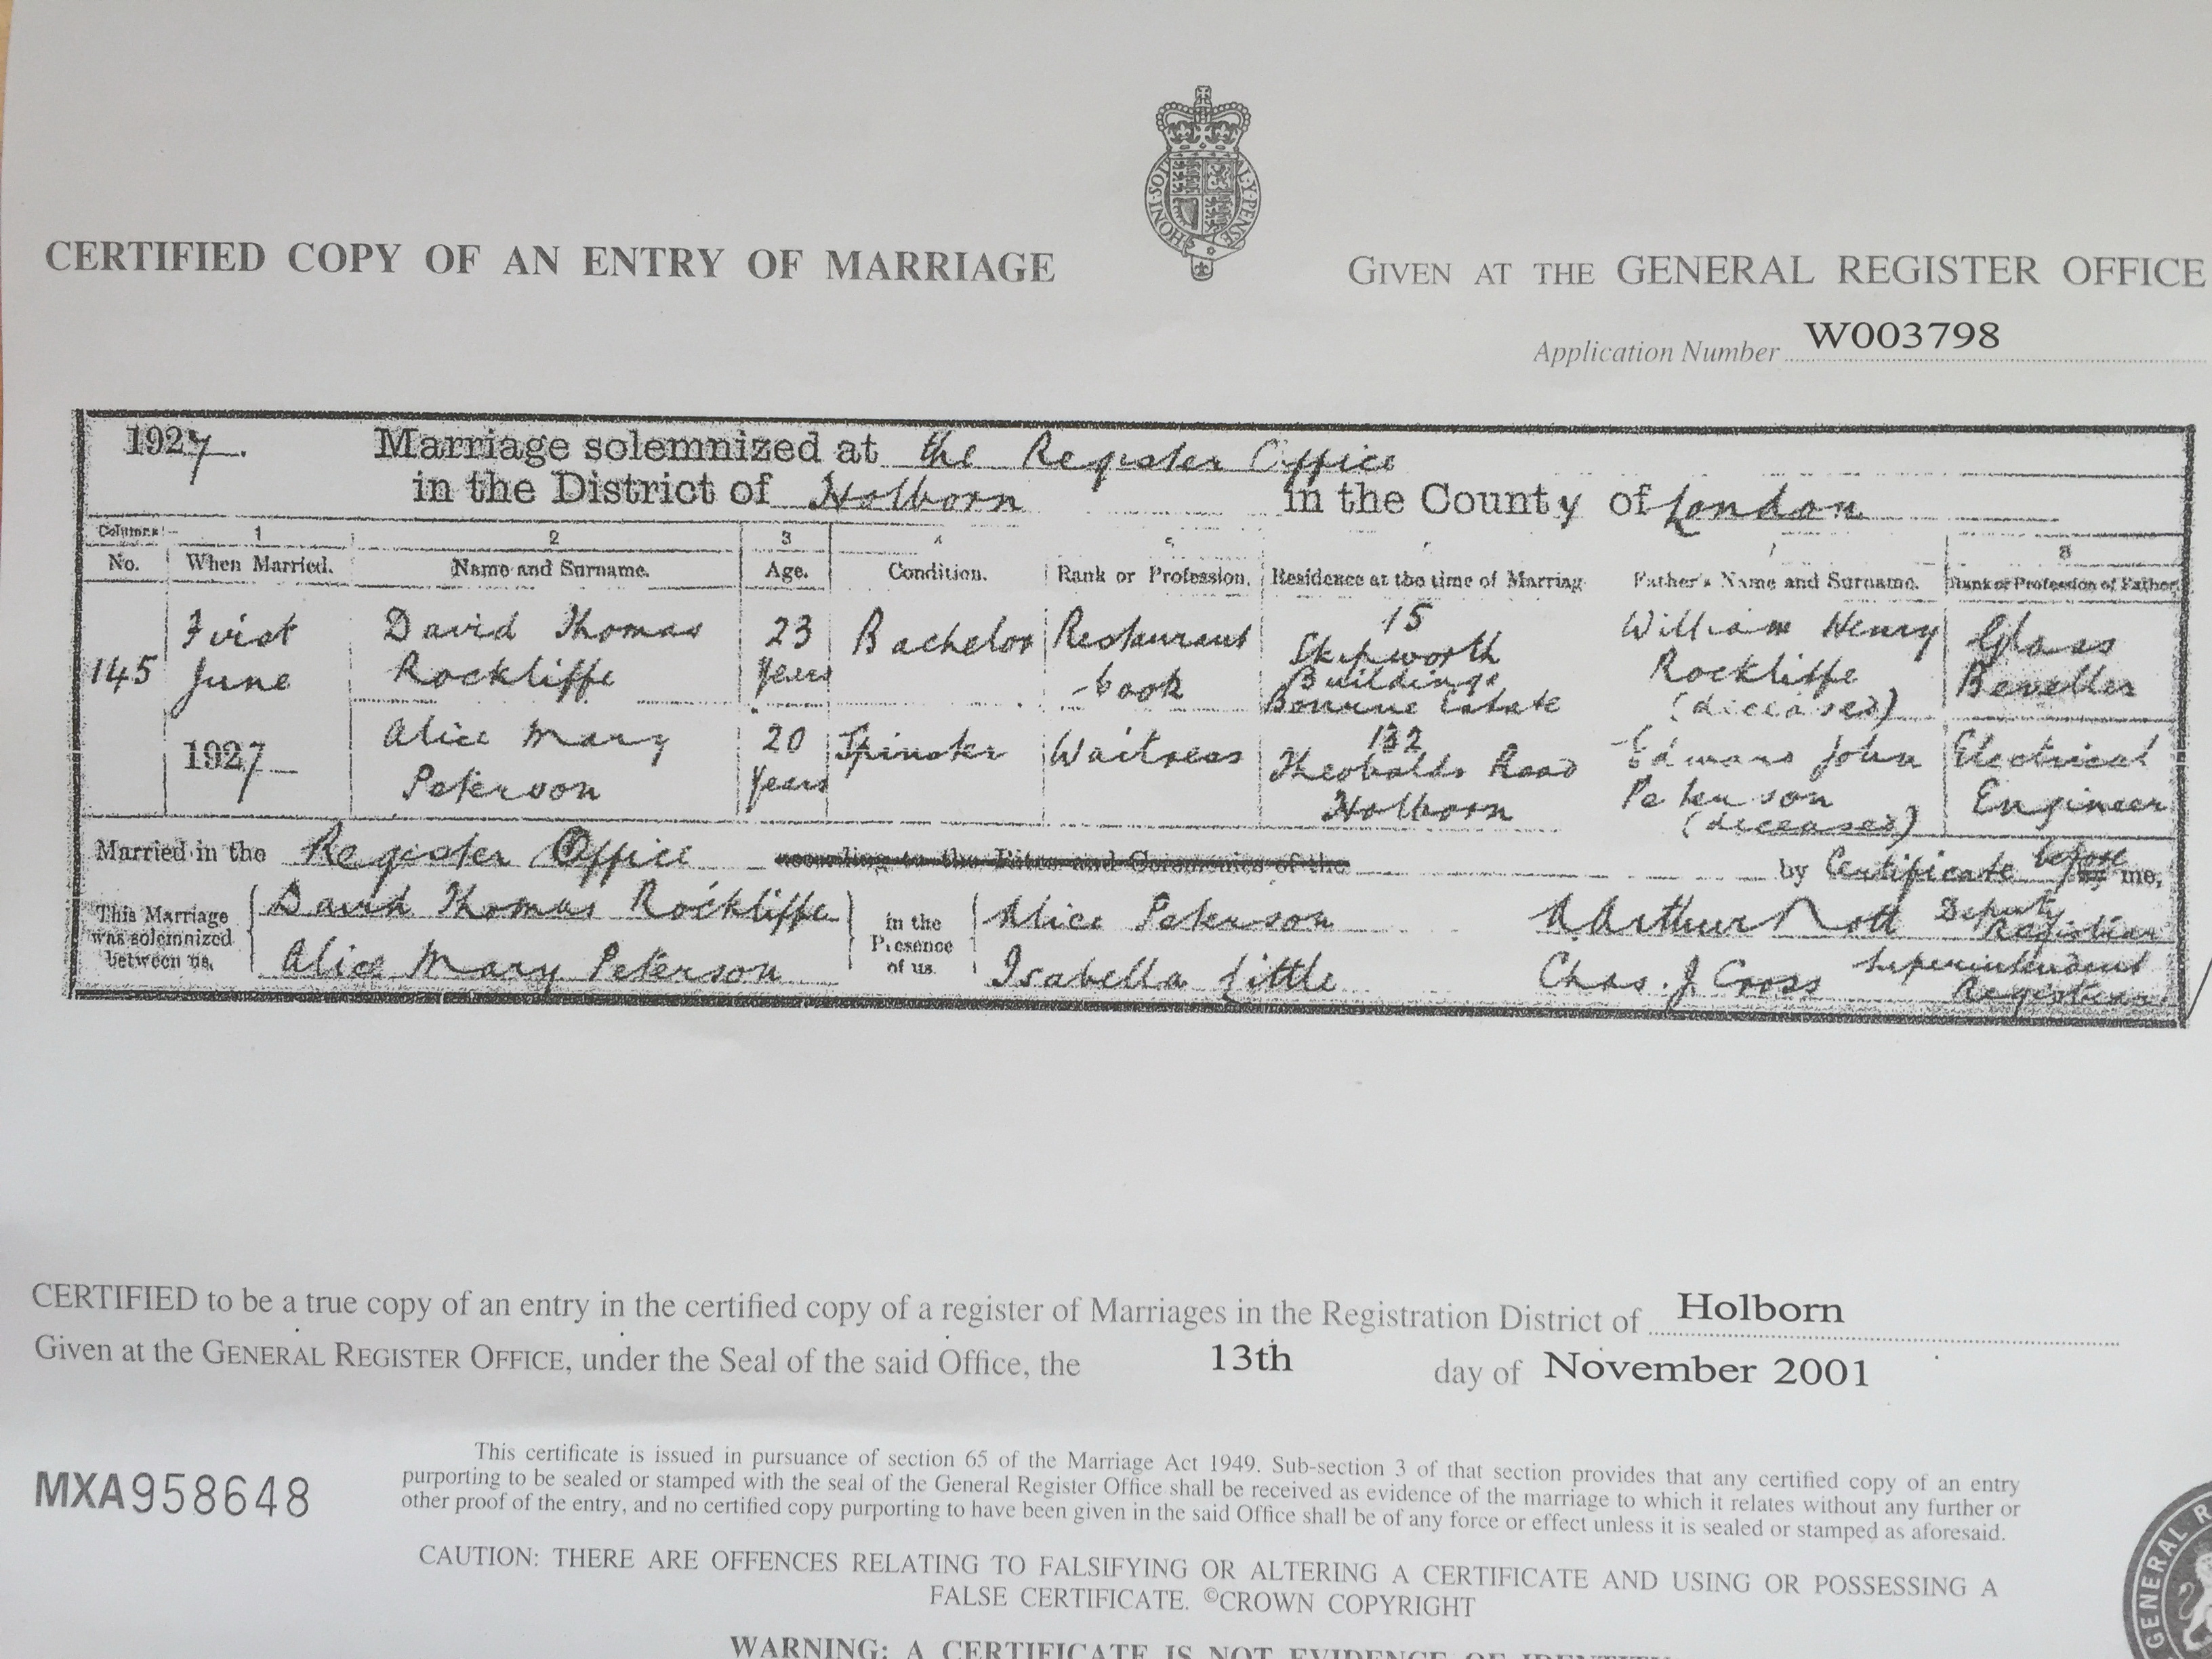 HONI·SOIT
AL·Y·PENSE
CERTIFIED COPY OF AN ENTRY OF MARRIAGE
GIVEN AT THE GENERAL REGISTER OFFICE
Application Number W003798
1927. Marriage solemnized at the Register Office
in the District of Holborn in the County of London
Columns:— 1 2 3 4 8
No. When Married. Name and Surname. Age. Condition. Rank or Profession. Residence at the time of Marriag Father's Name and Surname. Rank or Profession of Father
145 First June 1927 David Thomas Rockliffe 23 Years Bachelor Restaurant Cook 15 Skipworth Buildings Bourne Estate William Henry Rockliffe (deceased) Glass Beveller
Alice Mary Peterson 20 Years Spinster Waitress 132 Theobalds Road Holborn Edward John Peterson (deceased) Electrical Engineer
Married in the Register Office according to the Rites and Ceremonies of the by Certificate before me,
This Marriage was solemnized between us, David Thomas Rockliffe Alice Mary Peterson in the Presence of us. Alice Peterson Isabella Little
Arthur Nott Deputy Registrar
Chas. J. Cross Superintendent Registrar
CERTIFIED to be a true copy of an entry in the certified copy of a register of Marriages in the Registration District of Holborn
Given at the GENERAL REGISTER OFFICE, under the Seal of the said Office, the 13th day of November 2001
MXA958648
This certificate is issued in pursuance of section 65 of the Marriage Act 1949. Sub-section 3 of that section provides that any certified copy of an entry
purporting to be sealed or stamped with the seal of the General Register Office shall be received as evidence of the marriage to which it relates without any further or
other proof of the entry, and no certified copy purporting to have been given in the said Office shall be of any force or effect unless it is sealed or stamped as aforesaid.
CAUTION: THERE ARE OFFENCES RELATING TO FALSIFYING OR ALTERING A CERTIFICATE AND USING OR POSSESSING A
FALSE CERTIFICATE. ©CROWN COPYRIGHT
WARNING: A CERTIFICATE IS NOT EVIDENCE OF IDENTITY
GENERAL R